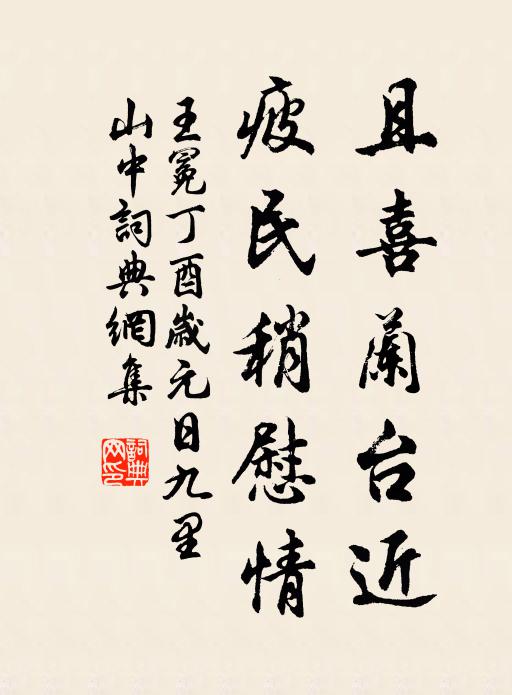 且喜蘭台近
疲民稍慰情
王冕丁酉歲元日九里
山中詞典網集
詞典網印